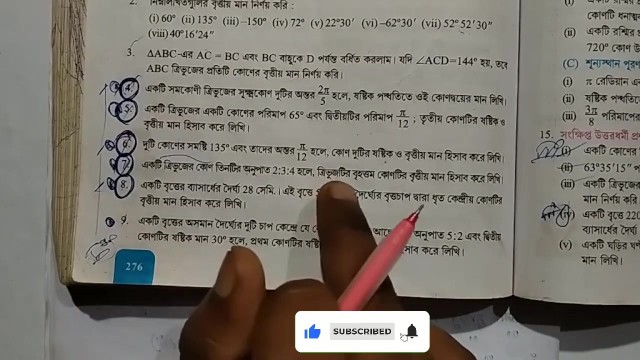 2. নিম্নলিখিতগুলির বৃত্তীয় মান নির্ণয় করি :
(i) 60° (ii) 135° (iii) –150° (iv) 72° (v) 22°30′ (vi) –62°30′ (vii) 52°52′30″
(viii) 40°16′24″
3. ΔABC-এর AC = BC এবং BC বাহুকে D পর্যন্ত বর্ধিত করলাম। যদি ∠ACD=144° হয়, তবে
ABC ত্রিভুজের প্রতিটি কোণের বৃত্তীয় মান নির্ণয় করি।
4. একটি সমকোণী ত্রিভুজের সূক্ষ্মকোণ দুটির অন্তর 2π/5 হলে, ষষ্টিক পদ্ধতিতে ওই কোণদ্বয়ের মান লিখি।
5. একটি ত্রিভুজের একটি কোণের পরিমাপ 65° এবং দ্বিতীয়টির পরিমাপ π/12 ; তৃতীয় কোণটির ষষ্টিক ও
বৃত্তীয় মান হিসাব করে লিখি।
6. দুটি কোণের সমষ্টি 135° এবং তাদের অন্তর π/12 হলে, কোণ দুটির ষষ্টিক ও বৃত্তীয় মান হিসাব করে লিখি।
7. একটি ত্রিভুজের কোণ তিনটির অনুপাত 2:3:4 হলে, ত্রিভুজটির বৃহত্তম কোণটির বৃত্তীয় মান হিসাব করে লিখি।
8. একটি বৃত্তের ব্যাসার্ধের দৈর্ঘ্য 28 সেমি.। এই বৃত্তে দৈর্ঘ্যের বৃত্তচাপ দ্বারা ধৃত কেন্দ্রীয় কোণটির
বৃত্তীয় মান হিসাব করে লিখি।
9. একটি বৃত্তের অসমান দৈর্ঘ্যের দুটি চাপ কেন্দ্রে যে অনুপাত 5:2 এবং দ্বিতীয়
কোণটির ষষ্টিক মান 30° হলে, প্রথম কোণটির হিসাব করে লিখি।
276
কোণটি
(ii) একটি
720° কোণ
(C) শূন্যস্থান
(i) π রেডিয়ান
(ii) ষষ্টিক
(iii) 3π/8 পরিমাপের
15. সংক্ষিপ্ত
(i) একটি কোণের
(ii) 63°35′15″
(iii) একটি ত্রিভুজের
মান নির্ণয়
(iv) একটি বৃত্তে 220
ব্যাসার্ধের দৈর্ঘ্য
(v) একটি ঘড়ির
মান লিখি।
SUBSCRIBED